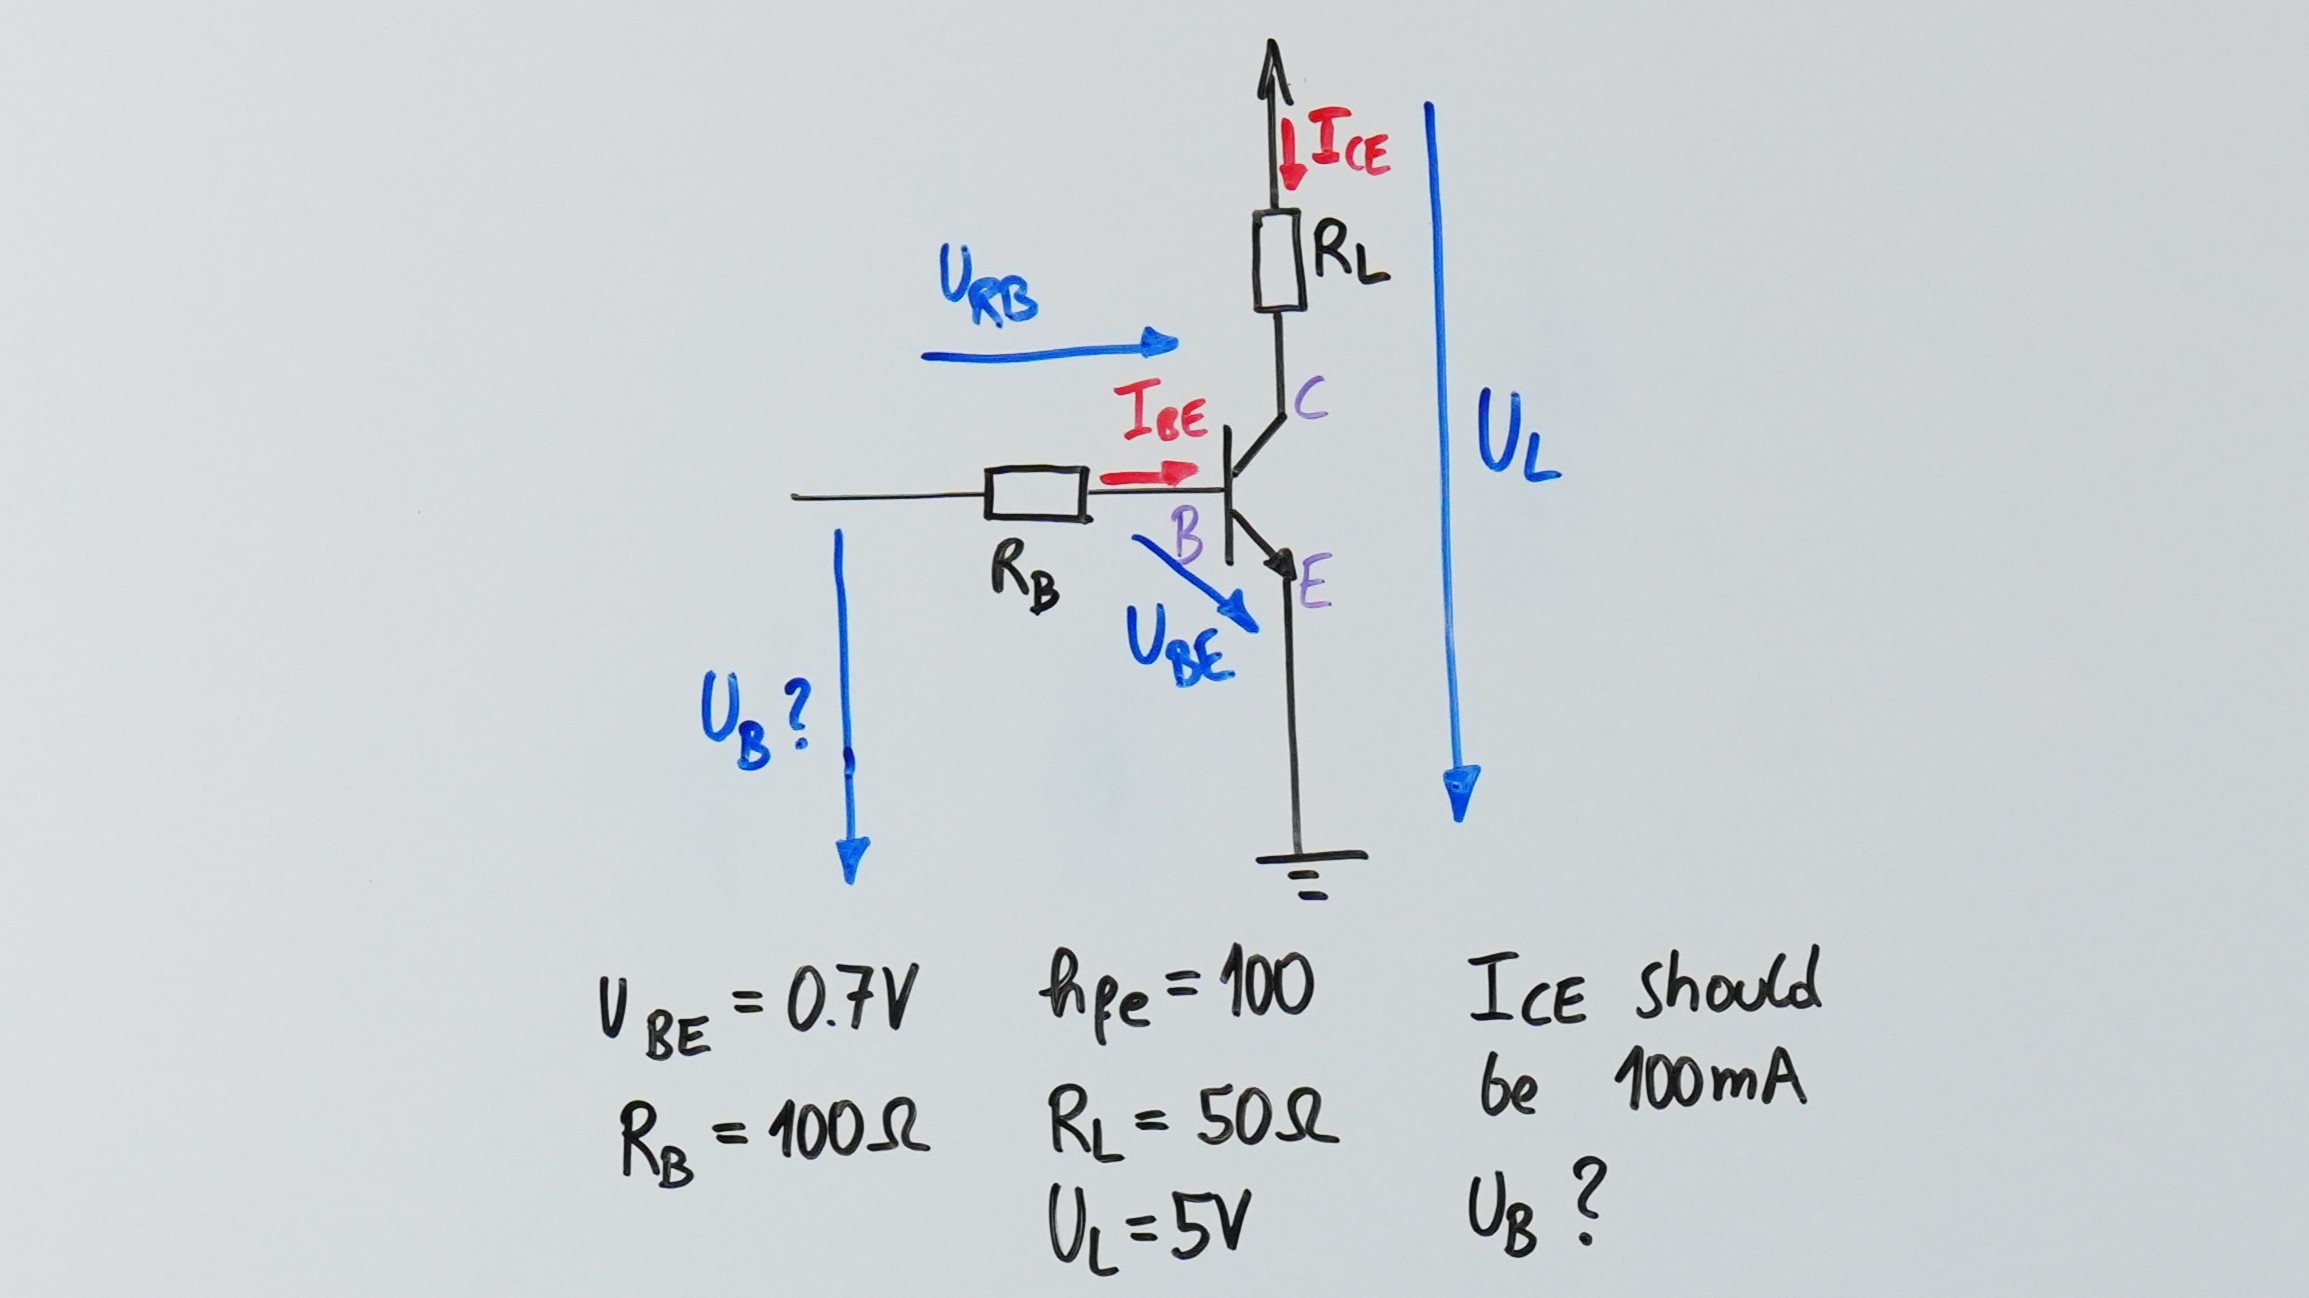 I_CE
R_L
U_RB
I_BE
C
U_L
B
E
R_B
U_BE
U_B?
U_BE = 0.7V
R_B = 100Ω
hfe = 100
R_L = 50Ω
U_L = 5V
I_CE should
be 100mA
U_B?